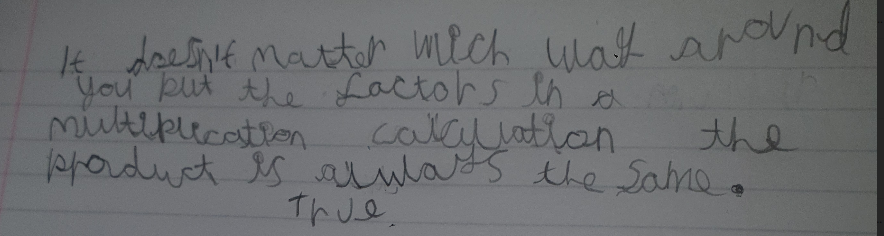 It doesn't matter wich way around
you put the factors in a
multiplication calculation the
product is always the same.
True.